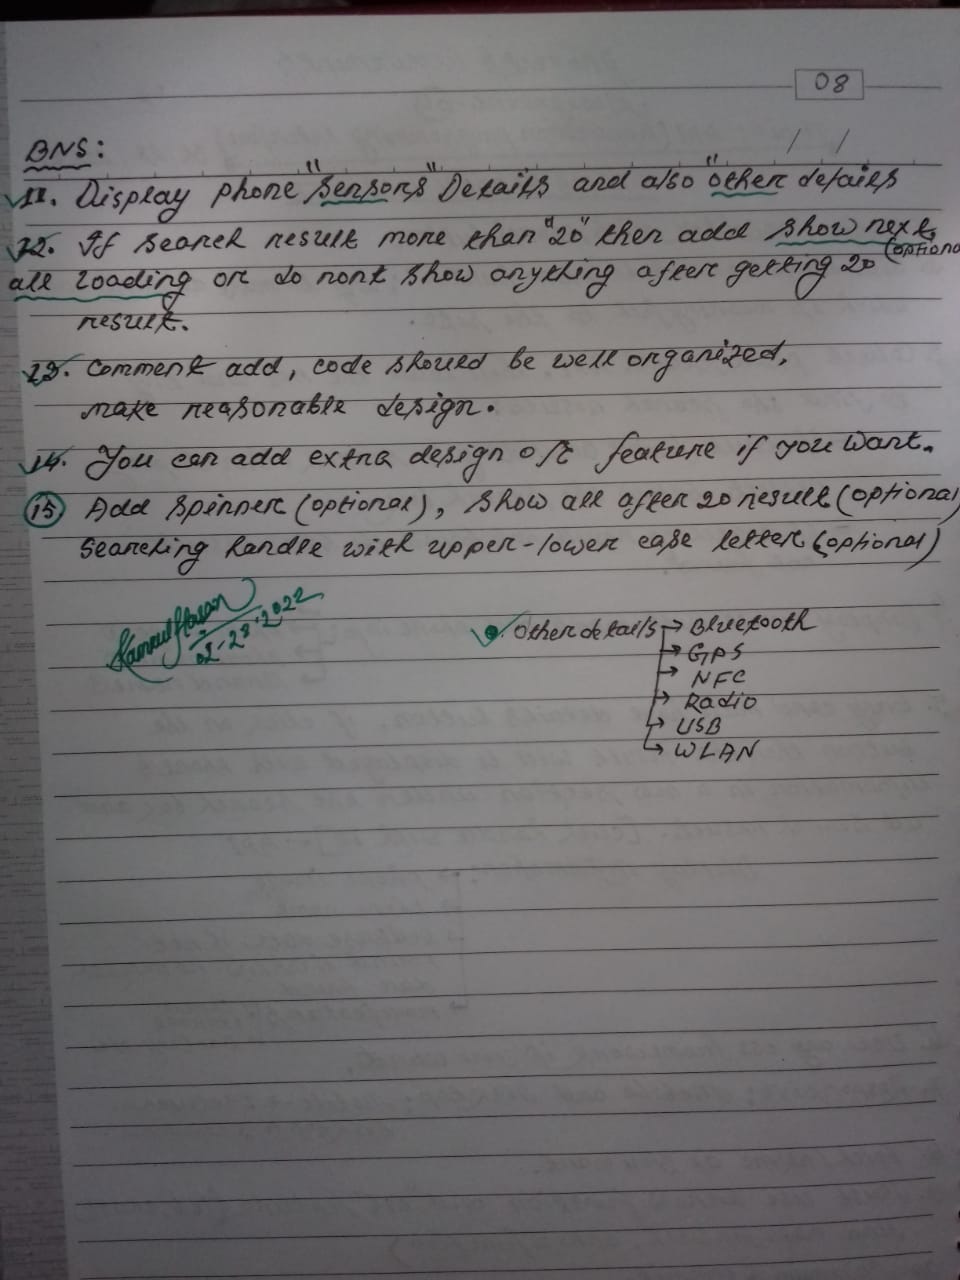 08
BNS:
11. Display phone "sensors" Details and also "other details
12. If search result more than "20" then add show next,
all loading or do nont show anything after getting 20 (optional
result.
13. Comment add, code should be well organized,
make reasonable design.
14. You can add extra design or feature if you want.
15 Add spinner (optional), show all after 20 result (optional)
Searching handle with upper-lower case letter (optional)
Kamrul Hasan
02-28-2022
Other details → Bluetooth
→ GPS
→ NFC
→ Radio
→ USB
→ WLAN